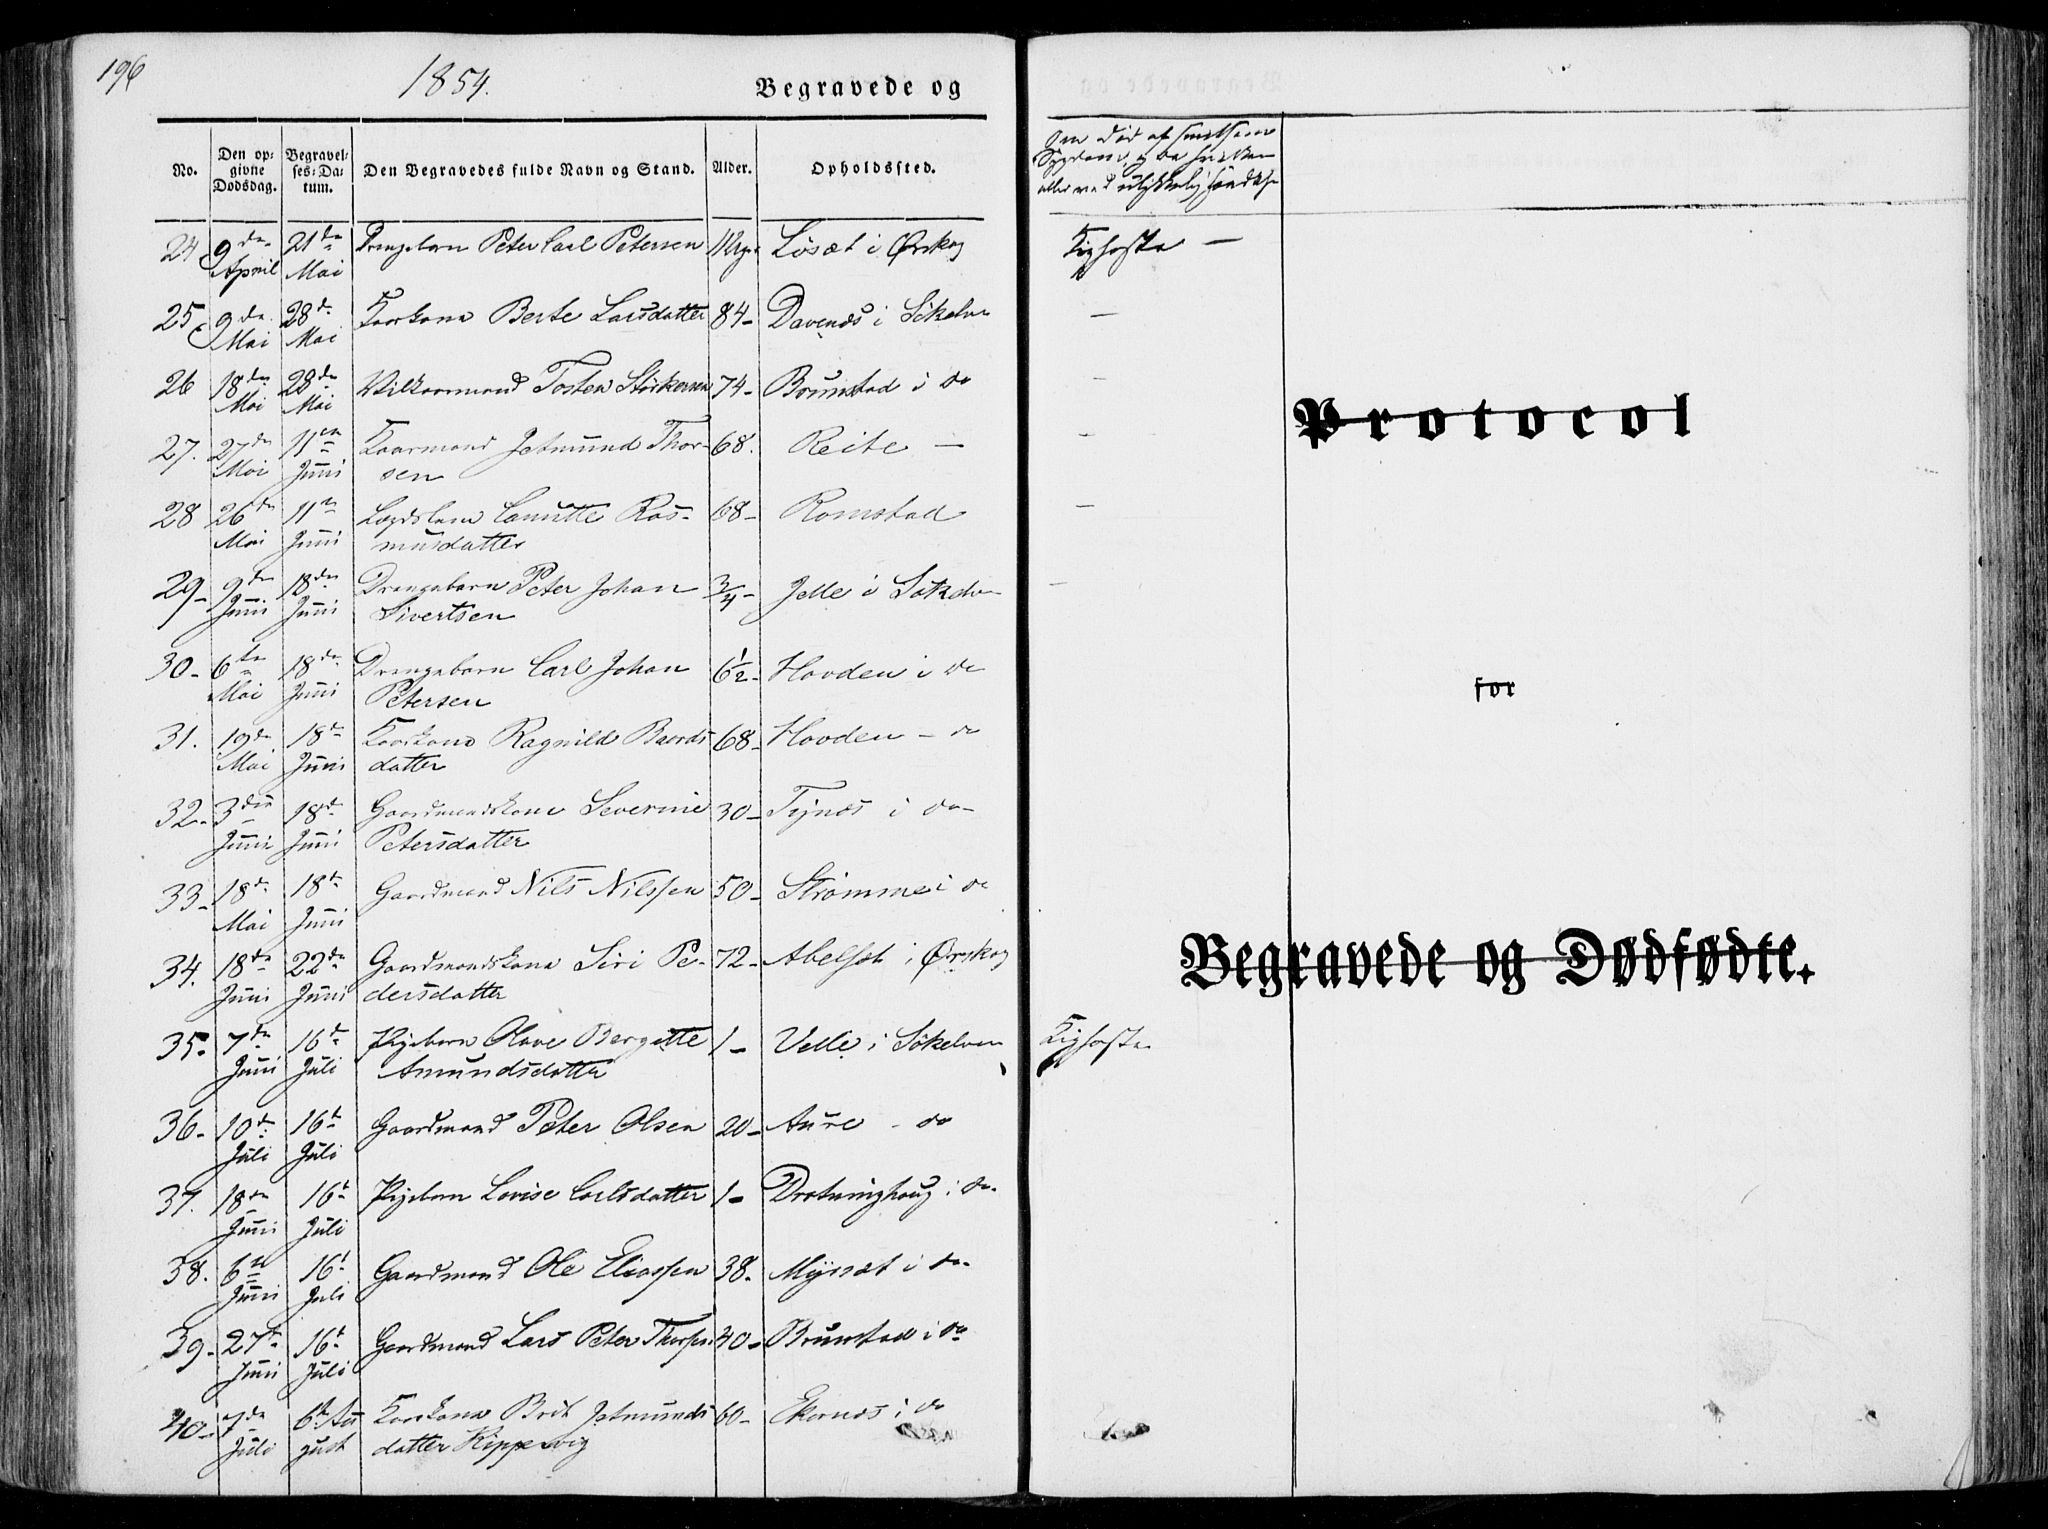 196
1854.
Begravede og
No. Den op- givne Dødsdag. Begravel- ses-Da- tum. Den Begravedes fulde Navn og Stand. Alder. Opholdssted.
Om Død af smitsom
Sygdom,
eller ved ulykkelig Hændelse
24 9de April 21de Mai Drengebarn Peter Carl Petersen Løsæt i Ørskog Kighoste —
25 9de Mai 28de Mai Kaarkone Berte Larsdatter 84- Davenæs i Søkelven —
26 18de Mai 28de Mai Vilkaarmand Tosten Størkersen 74- Brunstad i do -
27. 27de Mai 11te Juni Kaarmand Jetmund Thor-
sen 68. Reite — -
28 26de Mai 11te Juni Lægdslem Canutte Ras-
musdatter 68- Ramstad -
29- 9de Juni 18de Juni Drengebarn Peter Johan
Sivertsen 3/4- Jelle i Søkelven -
30- 6te Mai 18de Juni Drengebarn Carl Johan
Petersen 6½- Hovden i do
31. 19de Mai 18de Juni Kaarkone Ragnild Baards
datter 68- Hovden - do
32- 3die Juni 18de Juni Gaardmandskone Severine
Petersdatter 30- Tynæs i do-
33- 18de Mai 18de Juni Gaardmand Nils Nilssen 50- Strømme i do
34. 18de Juni 22de Juni Gaardmandskone Siri Pe-
dersdatter 72- Abelset i Ørskog
35- 7de Juni 16de Juli Pigebarn Olave Bergitte
Amundsdatter 1- Velle i Søkelven Kighoste
36- 10de Juli 16de Juli Gaardmand Peter Olsen 20- Aure - do
37. 18de Juni 16de Juli Pigebarn Lovise Carlsdatter 1- Drotninghaug i do-
38. 6te Juni 16de Juli Gaardmand Ole Eliassen 38- Myrsæt i do-
39- 27de Juni 16de Juli Gaardmand Lars Peter Thorsen 40- Brunstad i do
40- 7de Juli 6te August Kaarkone Brit Jetmunds
datter Kippervig 60- Ekornæs i do
Protocol
for
Begravede og Dødfødte.